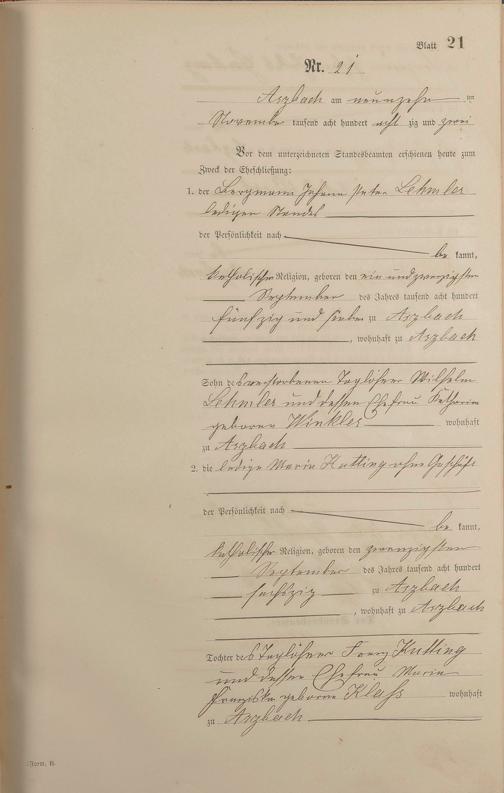 Blatt 21
Nr. 21
Arzbach am neunzehn ten
November tausend acht hundert acht zig und zwei
Vor dem unterzeichneten Standesbeamten erschienen heute zum
Zweck der Eheschließung:
1. der Bergmann Johann Peter Lehmler
ledigen Standes
der Persönlichkeit nach
be kannt,
katholischer Religion, geboren den ein und zwanzigsten
September des Jahres tausend acht hundert
fünfzig und sieben zu Arzbach
, wohnhaft zu Arzbach
Sohn des verstorbenen Taglöhner Wilhelm
Lehmler und dessen Ehefrau Katharina
geborene Winkler wohnhaft
zu Arzbach
2. die ledige Maria Kutting ohne Geschäft
der Persönlichkeit nach
be kannt,
katholischer Religion, geboren den zwanzigsten
September des Jahres tausend acht hundert
sechszig zu Arzbach
, wohnhaft zu Arzbach
Tochter des Taglöhner Kutting
und dessen Ehefrau Maria
Franziska geborene Klaß wohnhaft
zu Arzbach
Form. B.